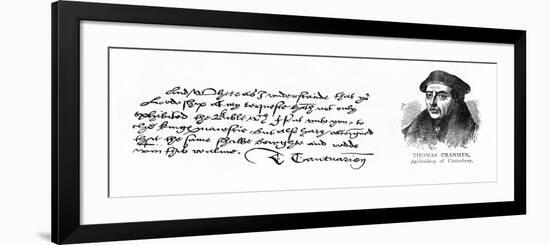 And Where as I understande that yor
Lordeship at my requeste hath not only
exhibited the Bible wch I sent unto you, to
the kings maiestie, but also hath obteyned
that the same shalbe bowghte and redde
within this realme. T Cantuarien
THOMAS CRANMER,
Archbishop of Canterbury.